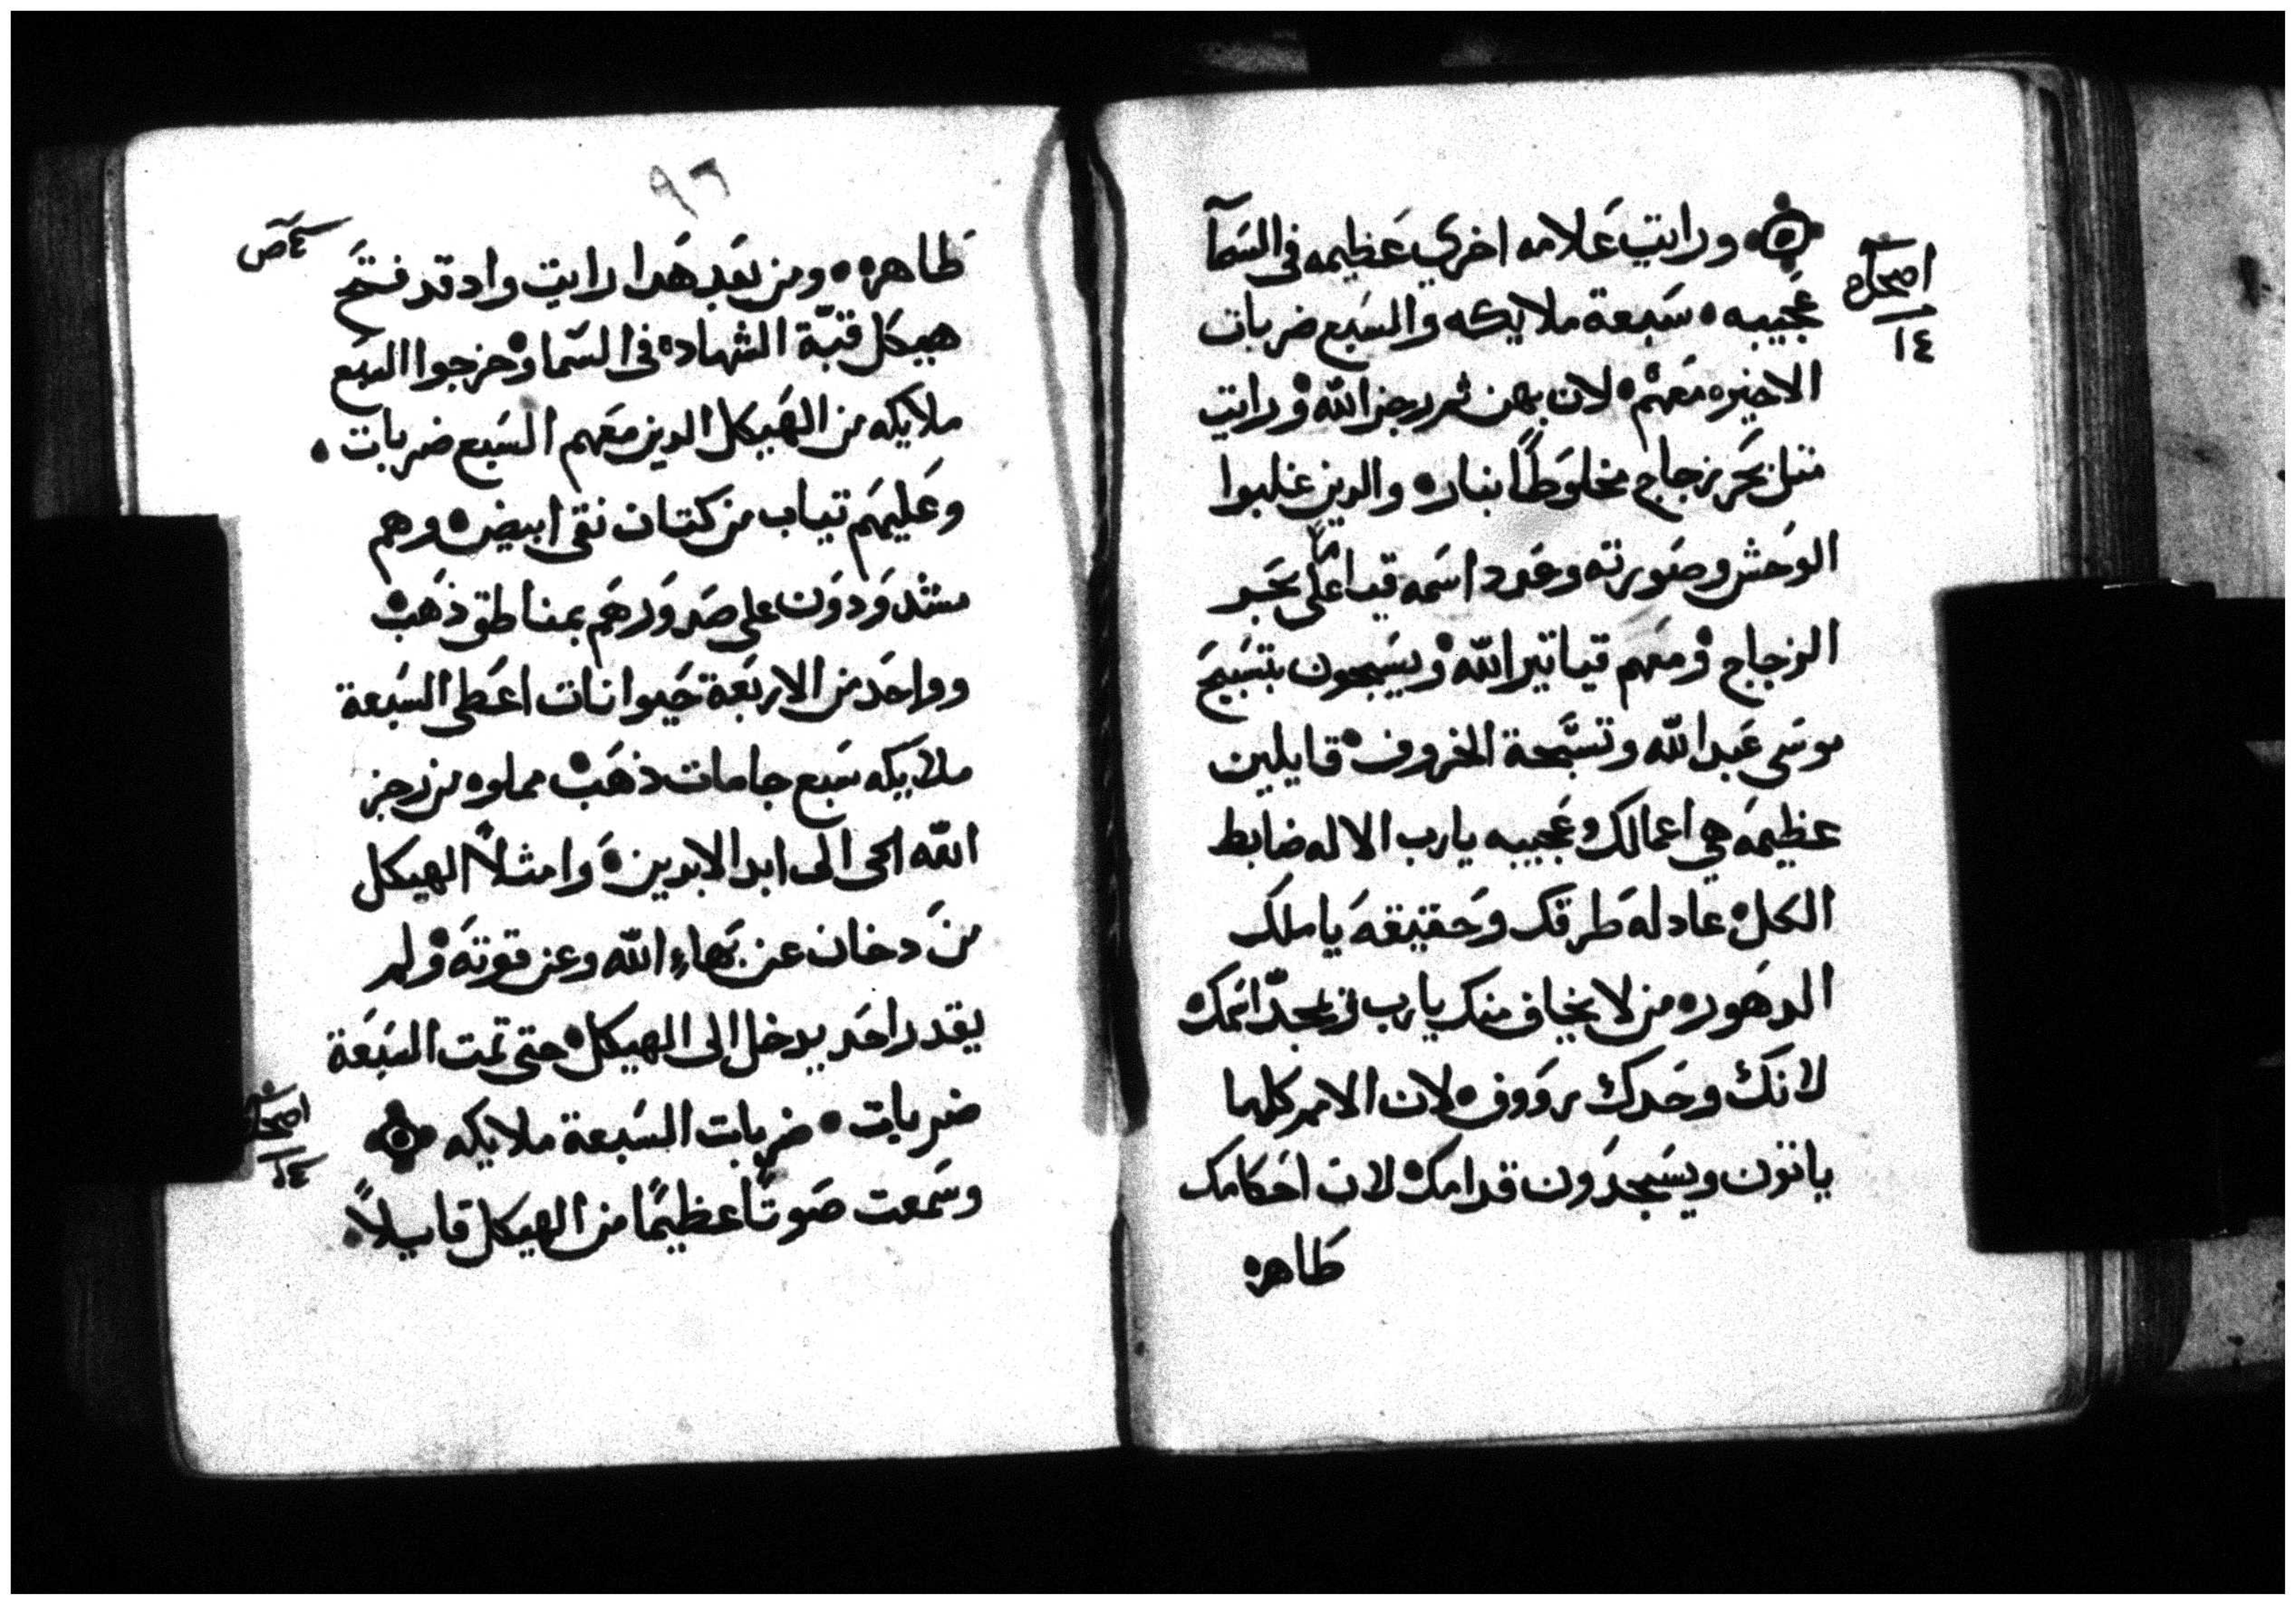 ورايت علامه اخري عظيمه في السمآ
اصحاح
١٤
عجيبه سبعة ملايكه والسبع ضربات
الاخيره معهم لان بهن تم رجز الله ورايت
مثل بحر زجاج مخلوطًا بنار والدين غلبوا
الوحش وصورته وعدد اسمه قيامًا على بحر
الزجاج ومعهم قياتير الله ويسبحون بتسبيح
موسى عبد الله وتسبحة الخروف قايلين
عظيمه هي اعمالك وعجيبه يارب الاله ضابط
الكل عادله طرقك وحقيقه ياملك
الدهور من لا يخاف منك يارب ويمجد اسمك
لانك وحدك رووف لان الامم كلها
ياتون ويسجدون قدامك لان احكامك
طاهره
٩٦
طاهره ومن بعد هدا رايت واد قد فتح
هيكل قبّة الشهاده في السما وخرجوا السبع
ملايكه من الهيكل الدين معهم السبع ضربات
وعليهم تياب من كتان نقي ابيض وهم
مشدودون على صدورهم بمناطق ذهب
وواحد من الاربعة حيوانات اعطى السبعة
ملاييكه سبع جامات ذهب مملوه من رجز
الله الحى الى ابد الابدين وامثلاً الهيكل
من دخان عن بهاء الله وعن قوته ولم
يقدر احد يدخل الى الهيكل حتى تمت السبعة
ضربات ضربات السبعة ملايكه
وسمعت صوتًا عظيمًا من الهيكل قايلاً